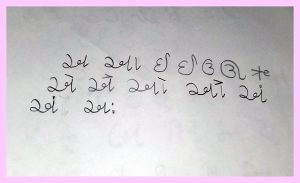 અ આ ઇ ઈ ઉ ઊ ઋ
એ ઐ ઓ ઔ અં
અં અઃ